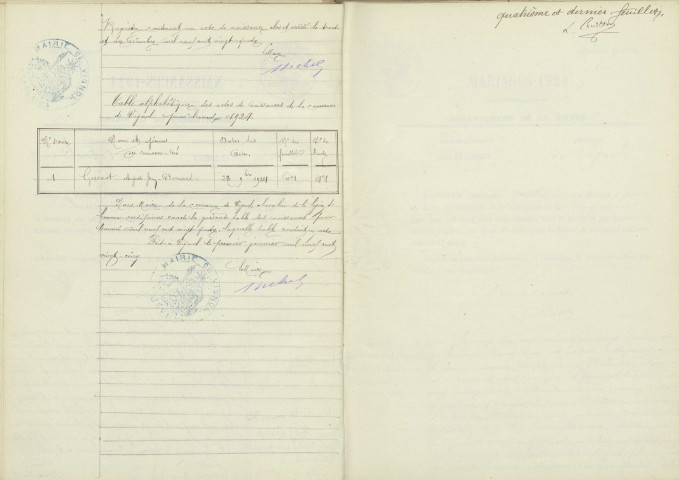 Registre contenant un acte de naissance clos et arrêté le trente
et un décembre mil neuf cent vingt quatre
Le Maire
Michel
MAIRIE DE VIGNOL
Table alphabétique des actes de naissances de la commune
de Vignol pour l'année 1924
Noms et Prénoms Dates des N° du N° de
actes feuillet l'acte
1 28 9bre 1924 N°1 N°1
Nous Maire de la commune de Vignol, chevalier de la Légion d'
honneur certifions exacte la présente table des naissances pour
l'année mil neuf cent vingt quatre, laquelle table contient un acte
Fait à Vignol le premier janvier mil neuf cent
vingt cinq
Le Maire
Michel
MAIRIE DE VIGNOL
quatrième et dernier feuillet